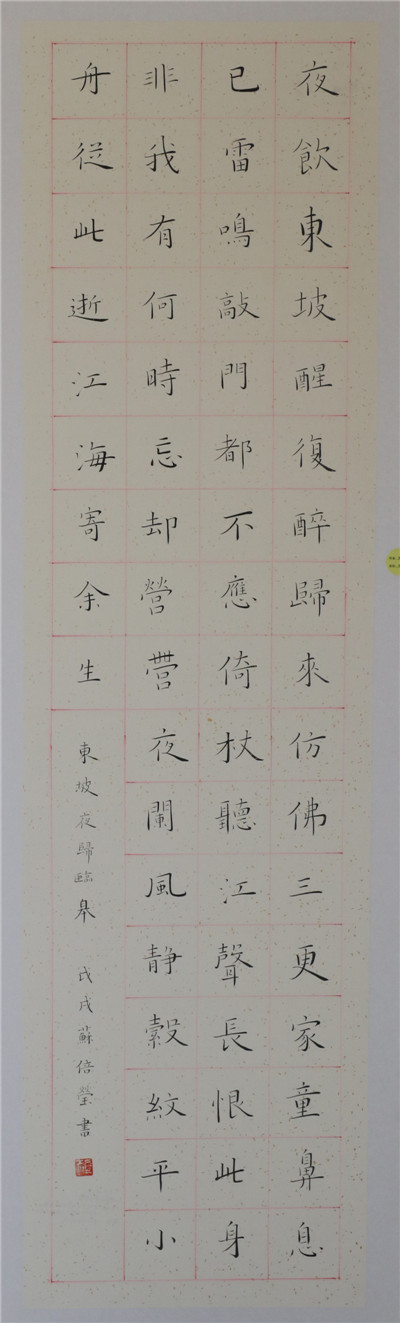 夜飲東坡醒復醉歸來仿佛三更家童鼻息
已雷鳴敲門都不應倚杖聽江聲長恨此身
非我有何時忘却營營夜闌風静縠紋平小
舟從此逝江海寄余生
東坡夜歸臨皋 戊戌蘇倍瑩書